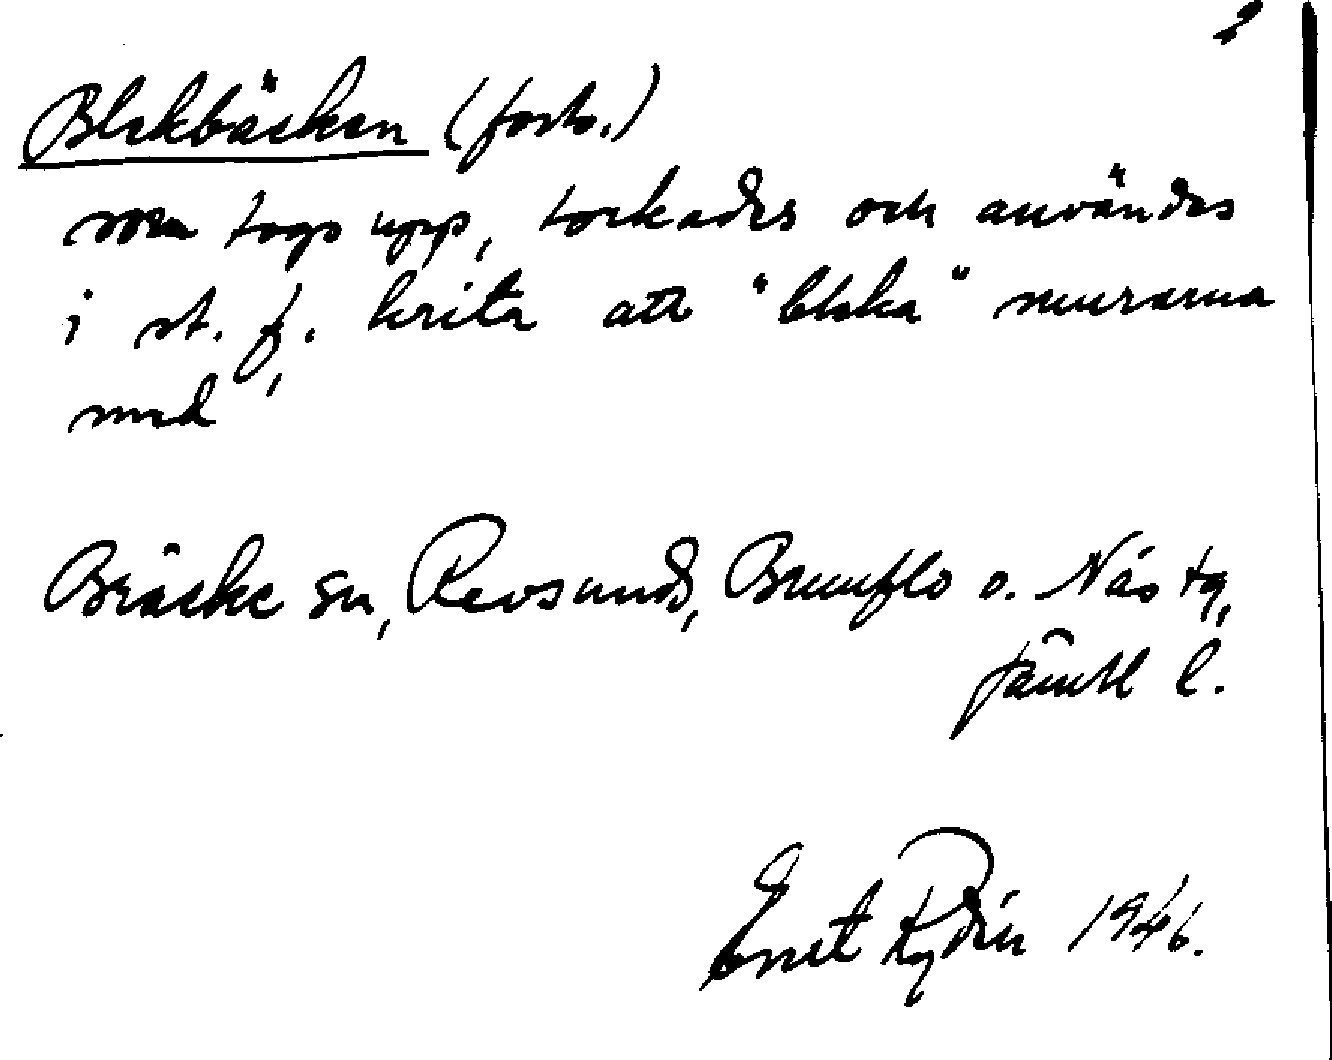 2
Blekbäcken (forts.)
som togs upp, torkades och användes
i st. f. krita att "bleka" murarna
med
Bräcke sn, Revsunds, Brunflo o. Näs tg,
Jämtl l.
Ernst Rydén 1946.